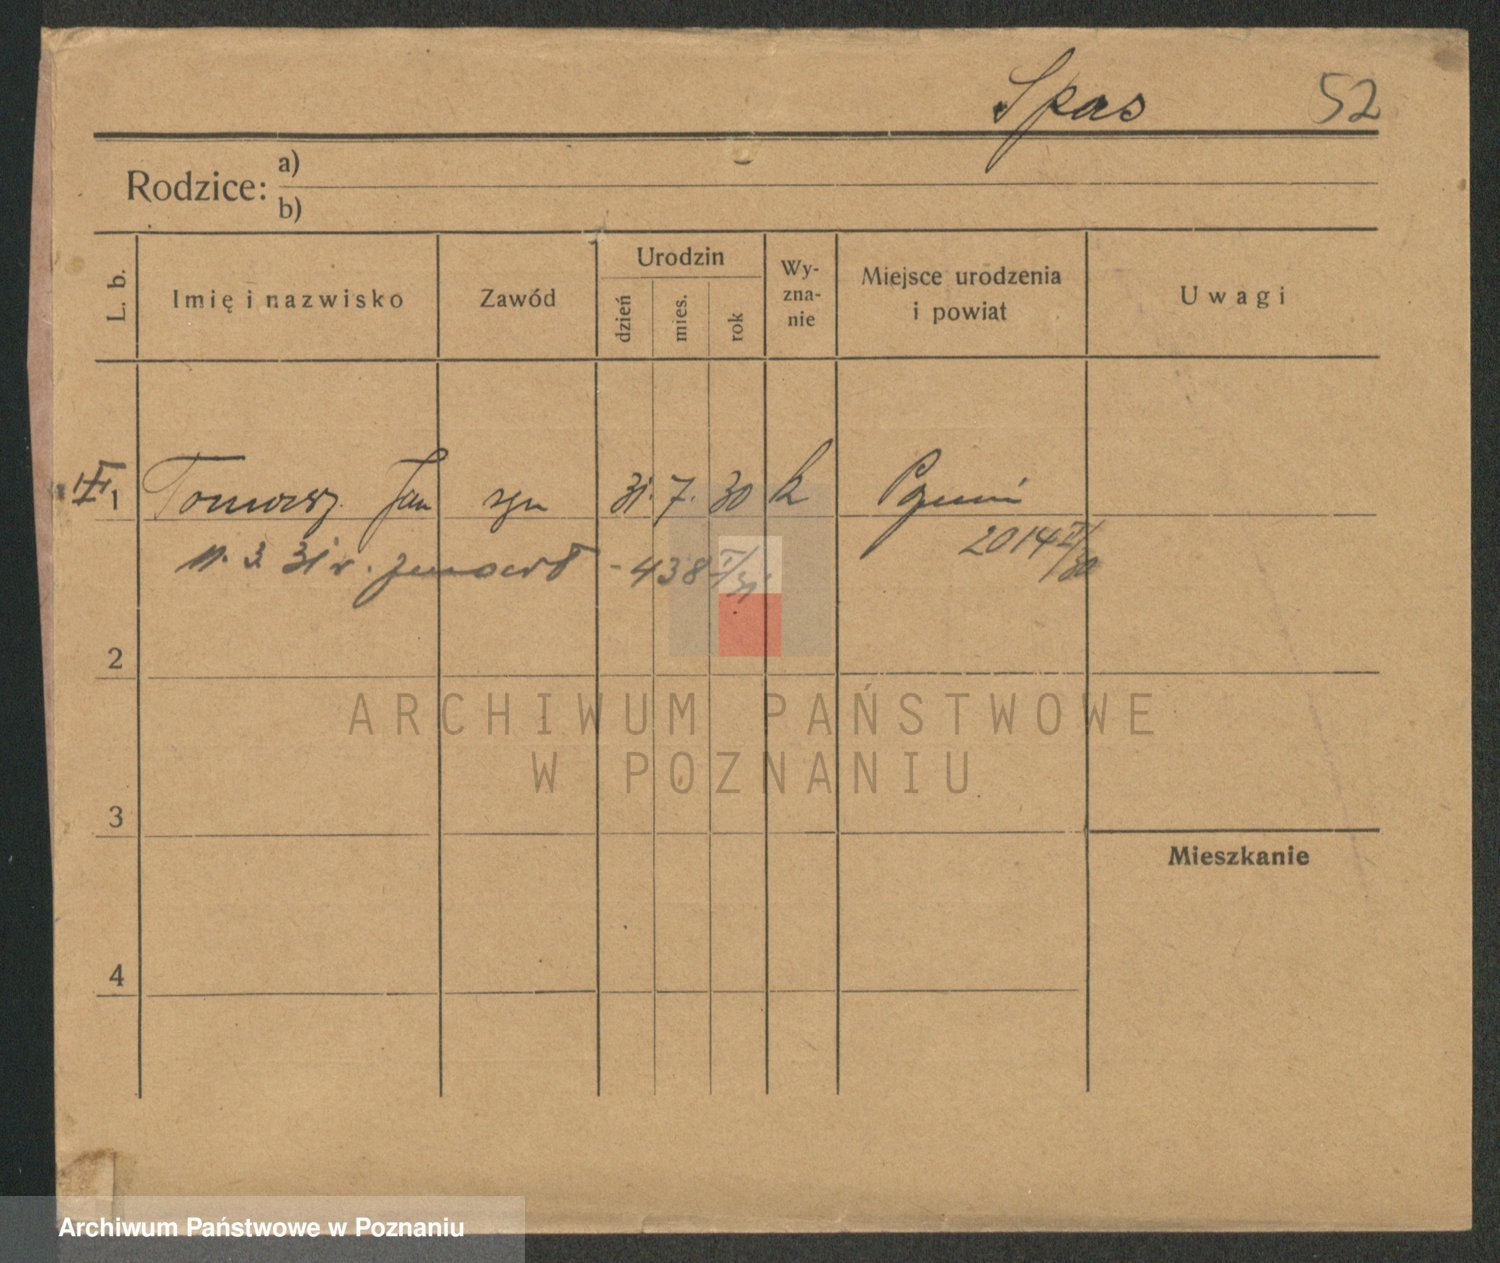 Spas 52
Rodzice: a)
b)
L. b. Imię i nazwisko Zawód Urodzin dzień mies. rok Wy-zna-nie Miejsce urodzenia i powiat Uwagi
1 Tomasz Jan syn 31. 7. 30 k Poznań
2014 II/30
11. 3. 31 r. zmarł - 438 II/31
2
ARCHIWUM PAŃSTWOWE
W POZNANIU
3
Mieszkanie
4
Archiwum Państwowe w Poznaniu